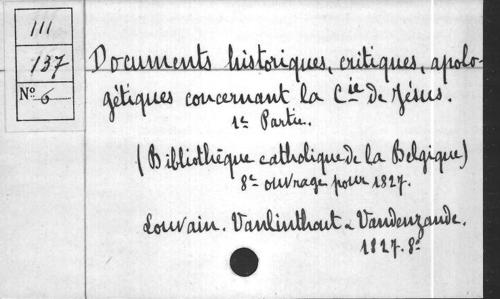 111
137
No 6
Documents historiques, critiques, apolo-
gétiques concernant la Cie de Jésus.
1e Partie.
(Bibliothèque catholique de la Belgique)
8e ouvrage pour 1827.
Louvain. Vanlinthout & Vandenzande.
1827. 8o